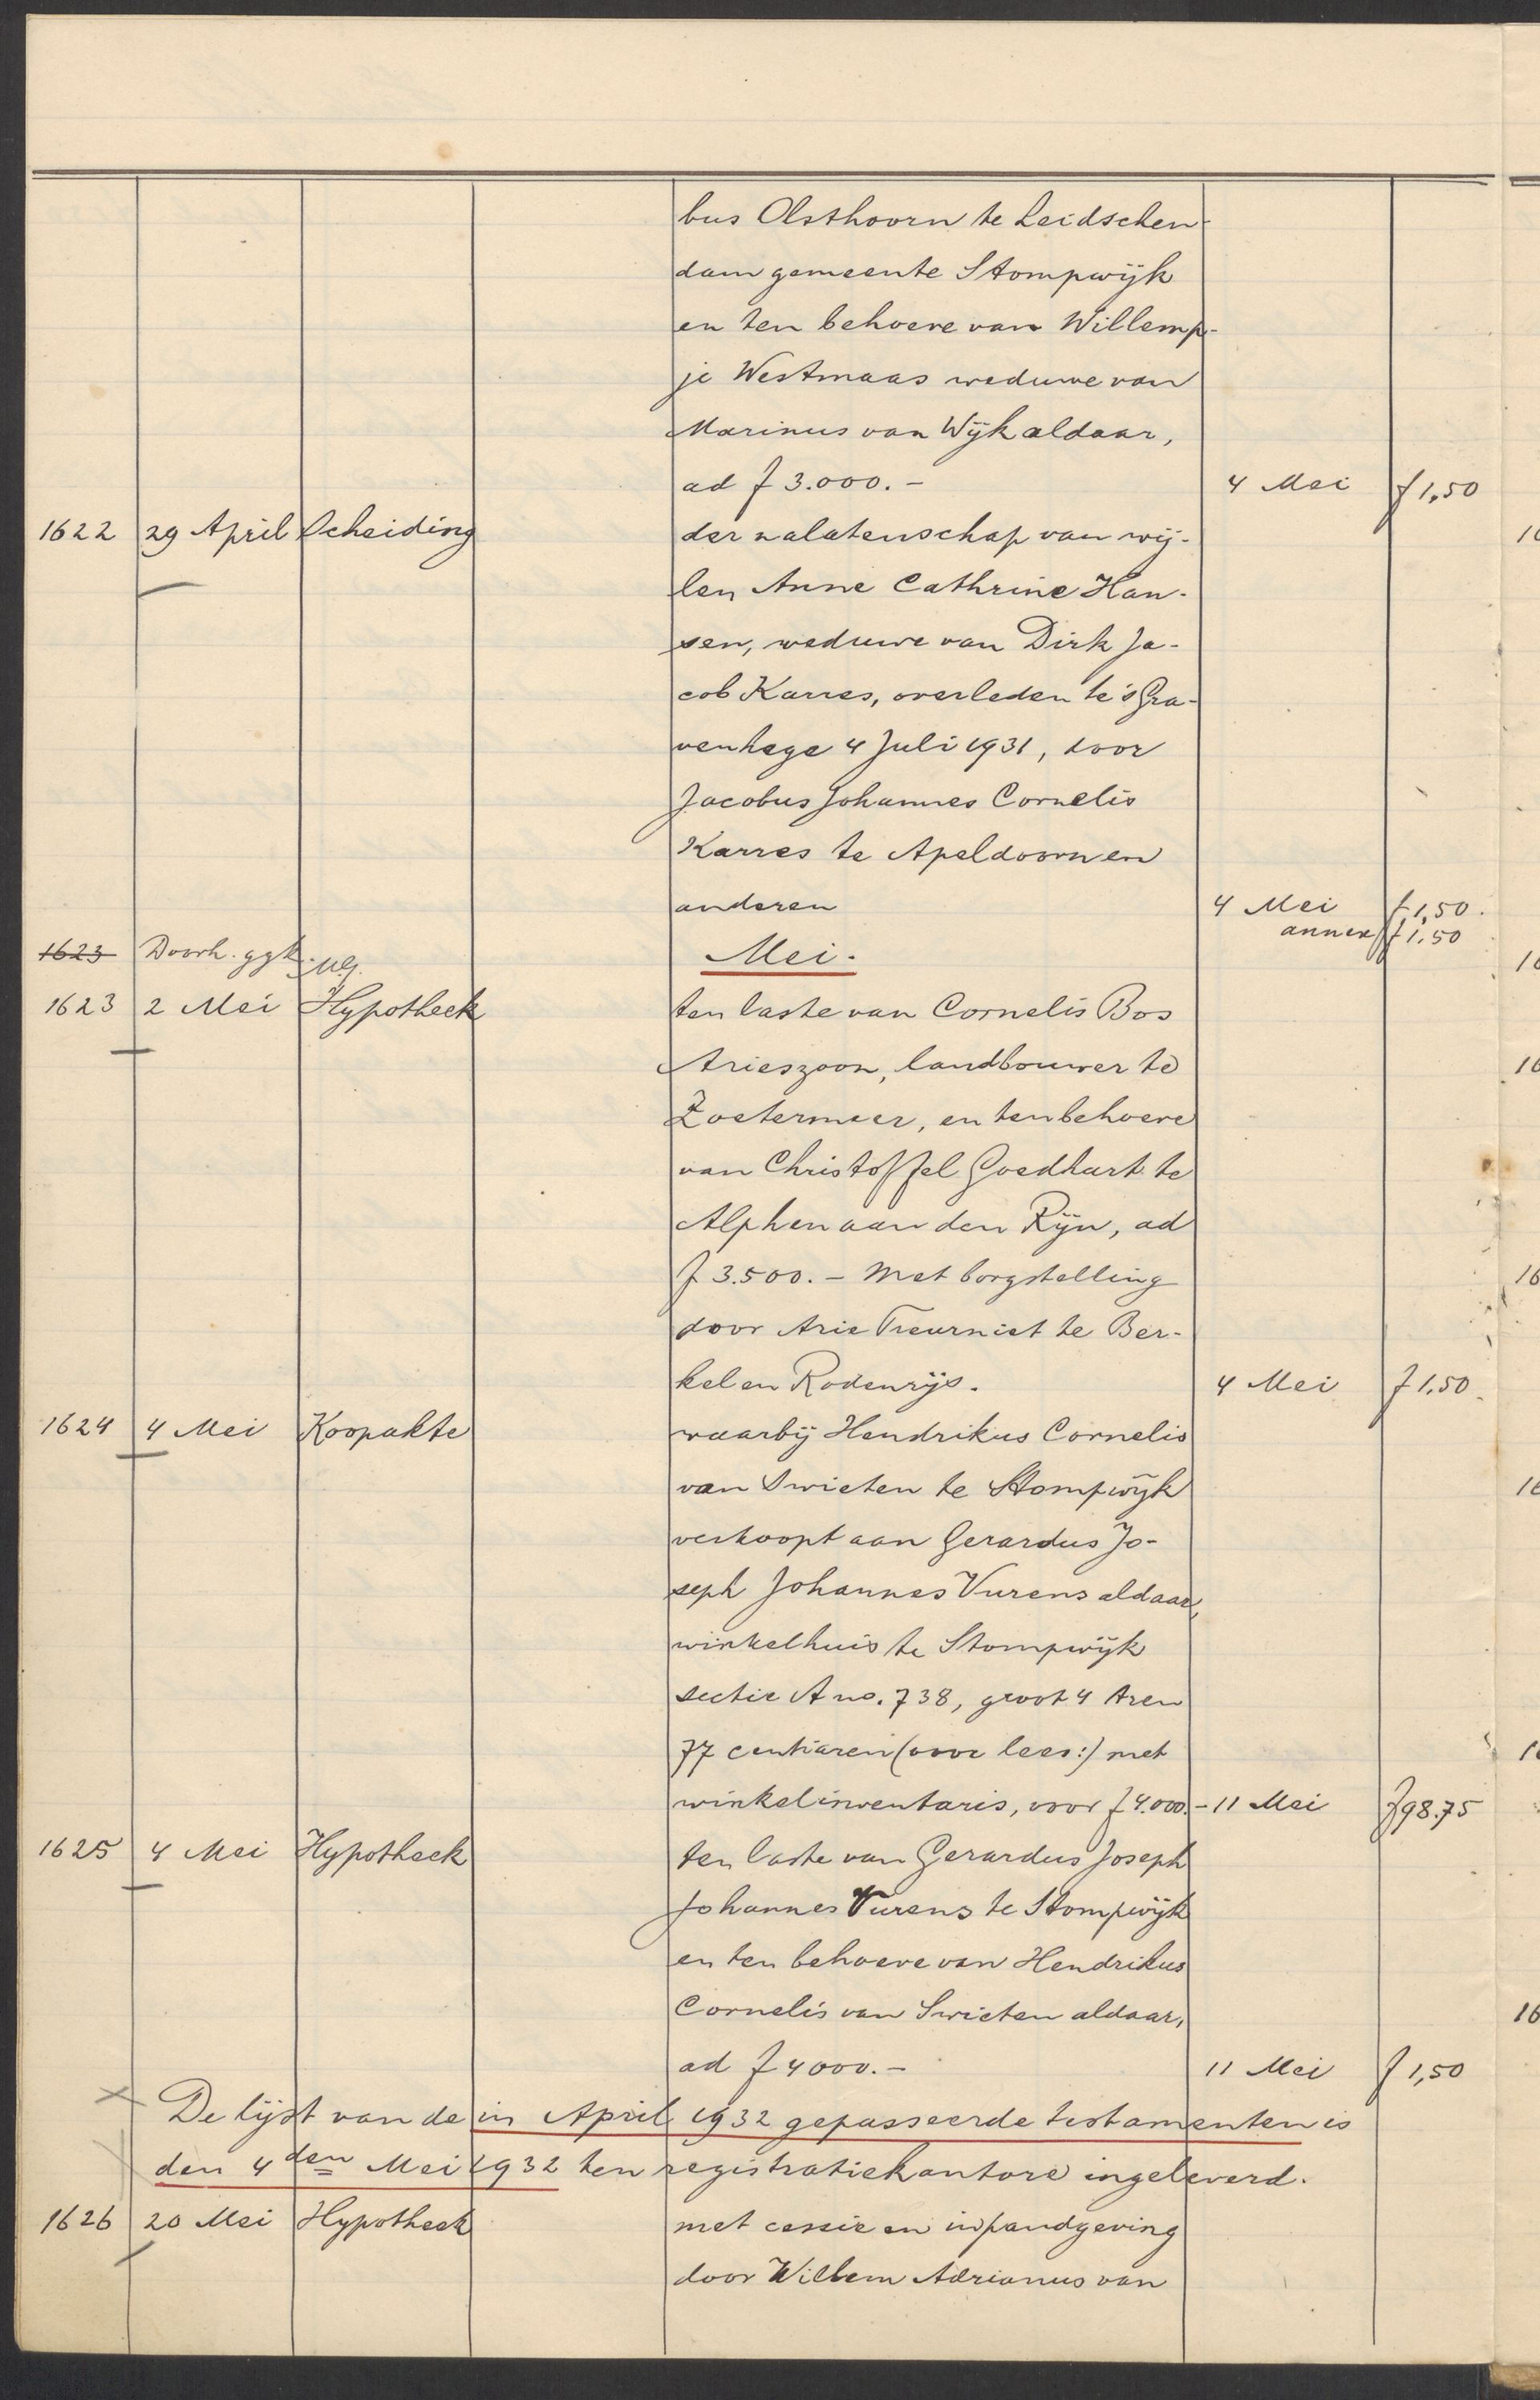 bus Olsthoorn te Leidschen-
dam gemeente Stompwijk
en ten behoeve van Willemp-
je Westmaas weduwe van
Marinus van Wijk aldaar,
ad f 3.000.- 4 Mei f 1,50
1622 29 April Scheiding der nalatenschap van wij-
len Anne Cathrine Han-
sen, weduwe van Dirk Ja-
cob Karres, overleden te 's Gra-
venhage 4 Juli 1931, door
Jacobus Johannes Cornelis
Karres te Apeldoorn en
anderen 4 Mei f 1,50.
annex f 1.50
1623 Doorh. ggk. Mei.
1623 2 Mei Hypotheek ten laste van Cornelis Bos
Arieszoon, landbouwer te
Zoetermeer, en ten behoeve
van Christoffel Goedhart te
Alphen aan den Rijn, ad
f 3.500.- Met borgstelling
door Arie Treurniet te Ber-
kel en Rodenrijs. 4 Mei f 1.50
1624 4 Mei Koopakte waarbij Hendrikus Cornelis
van Swieten te Stompwijk
verkoopt aan Gerardus Jo-
seph Johannes Vurens aldaar,
winkelhuis te Stompwijk
sectie A no. 738, groot 4 Aren
77 centiaren (voor lees:) met
winkelinventaris, voor f 4.000.- 11 Mei f 98.75
1625 4 Mei Hypotheek ten laste van Gerardus Joseph
Johannes Vurens te Stompwijk
en ten behoeve van Hendrikus
Cornelis van Swieten aldaar,
ad f 4000.- 11 Mei f 1,50
De lijst van de in April 1932 gepasseerde testamenten is
den 4den Mei 1932 ten registratiekantore ingeleverd.
1626 20 Mei Hypotheek met cessie en inpandgeving
door Willem Adrianus van